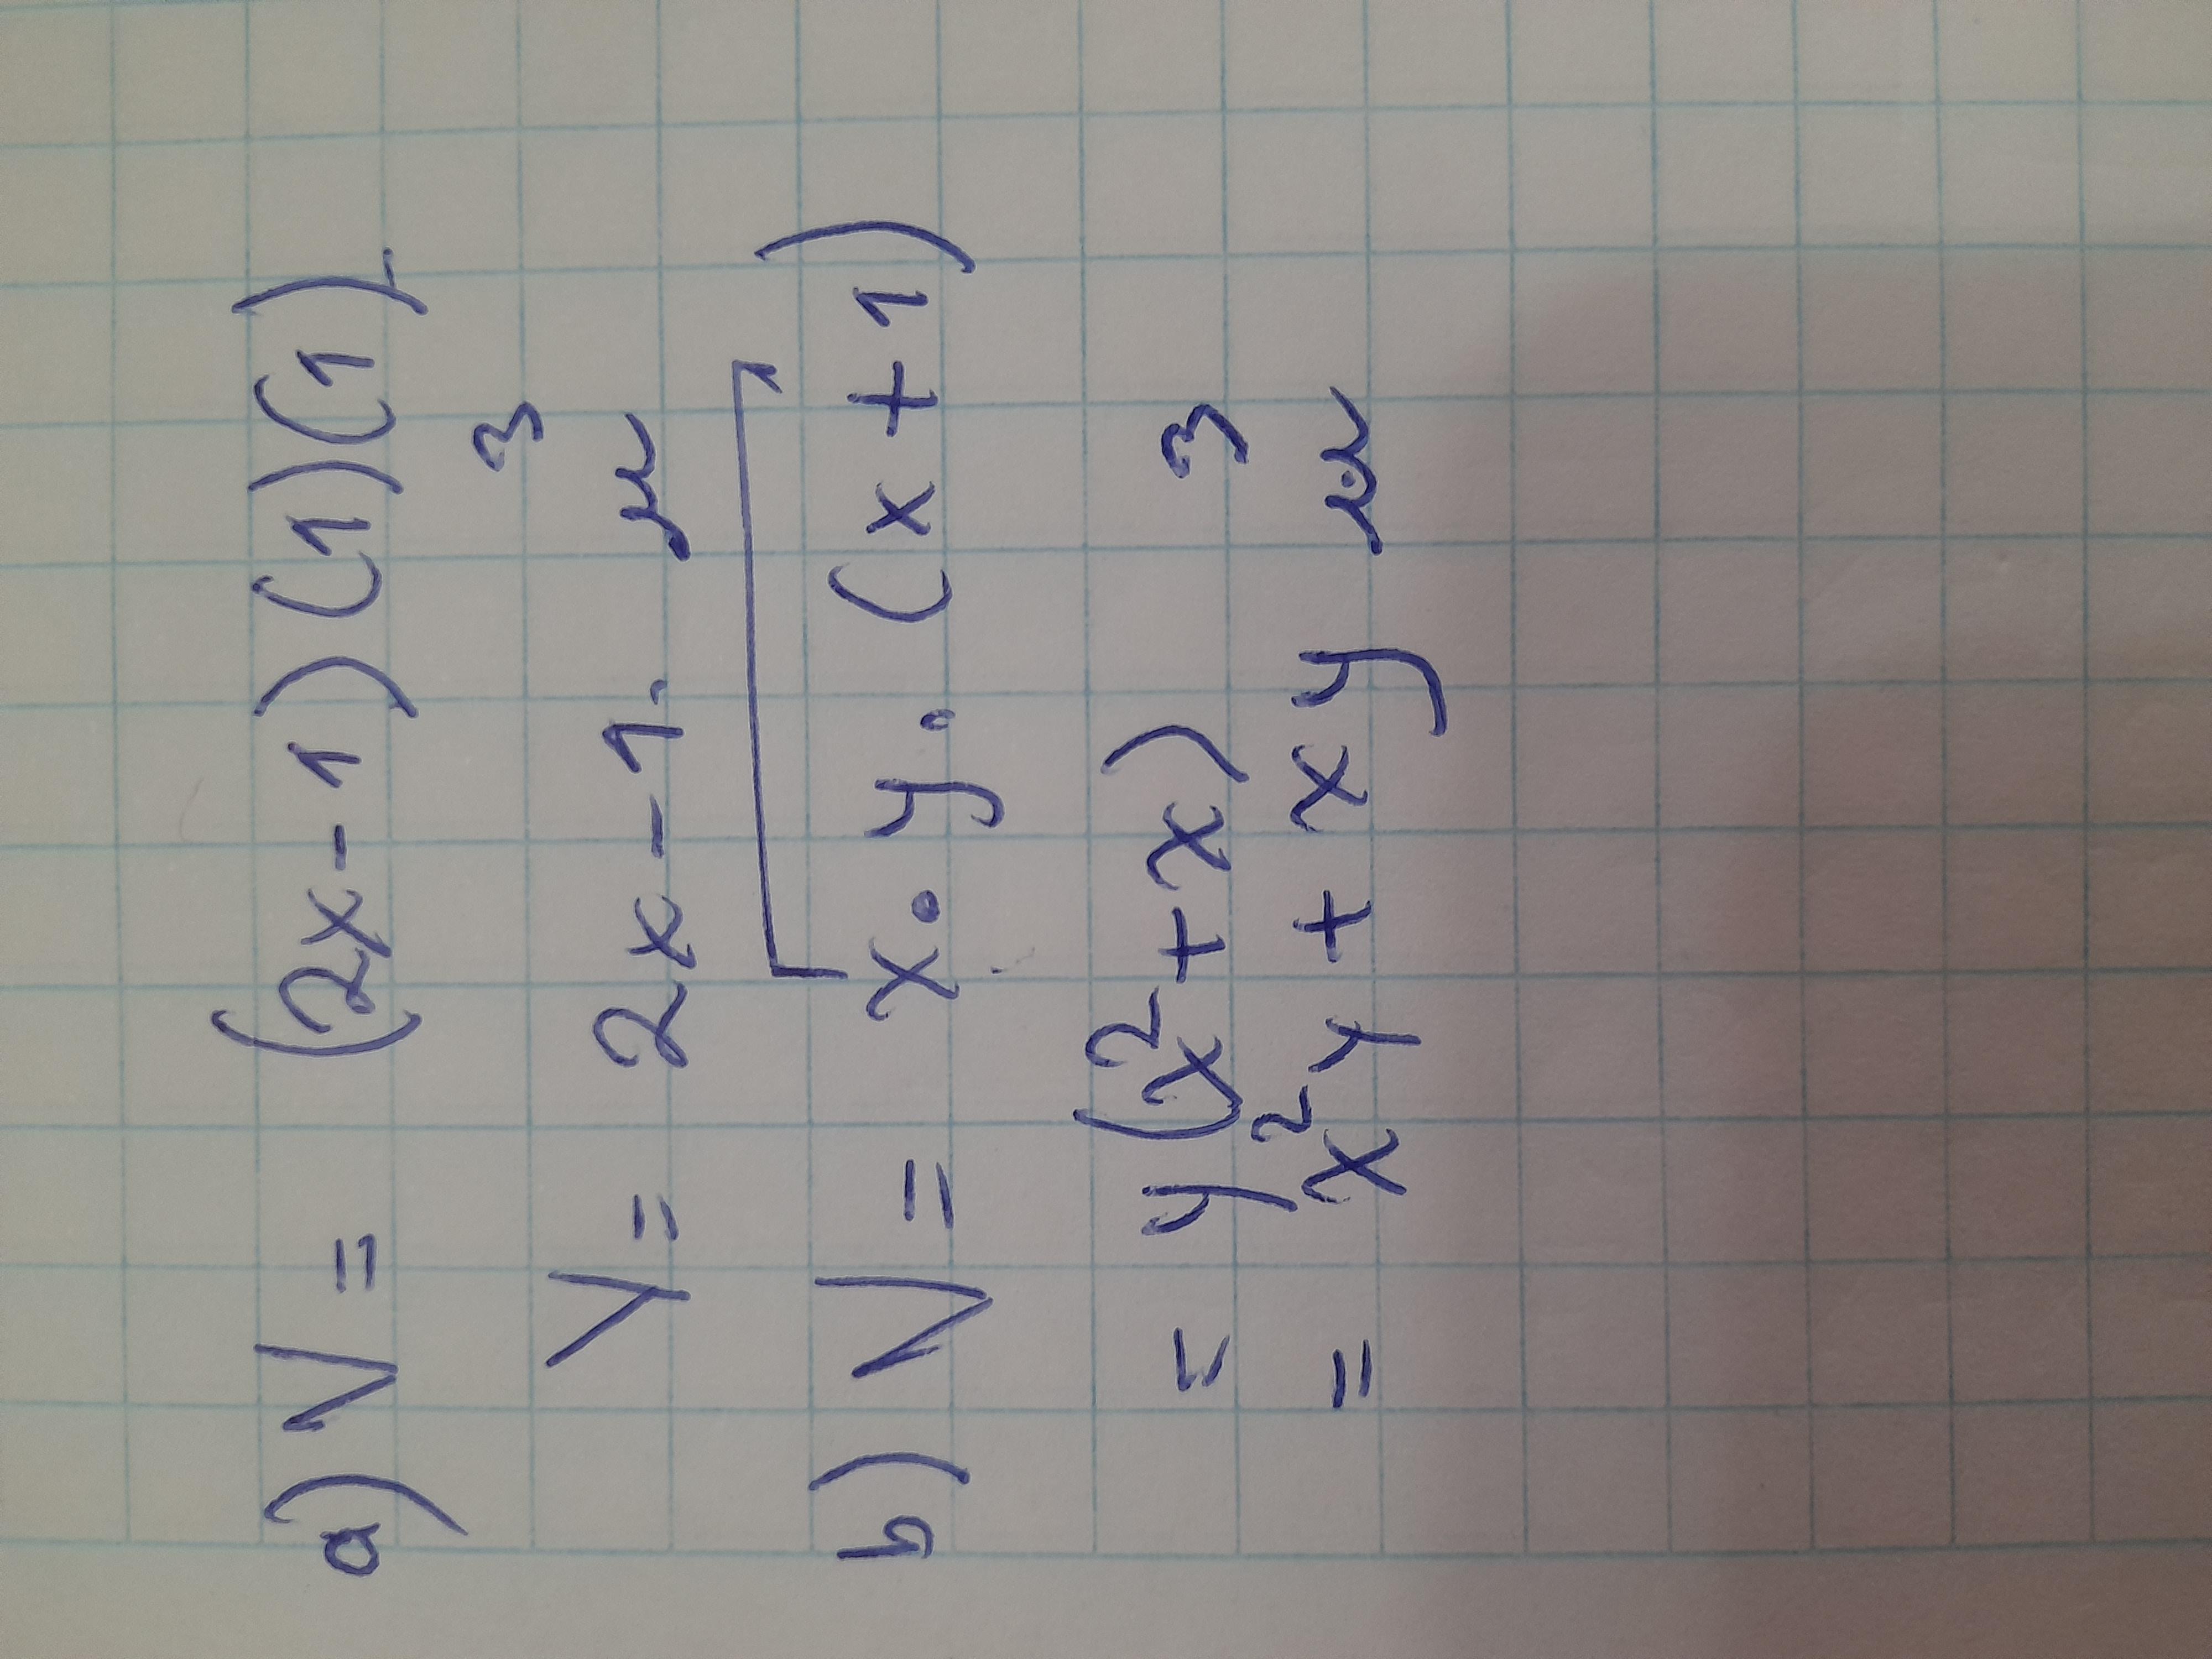 a) V = (2x-1)(1)(1)
V = 2x-1. u³
b) V = x·y·(x+1)
= y(x²+x)
= x²y + xy u³